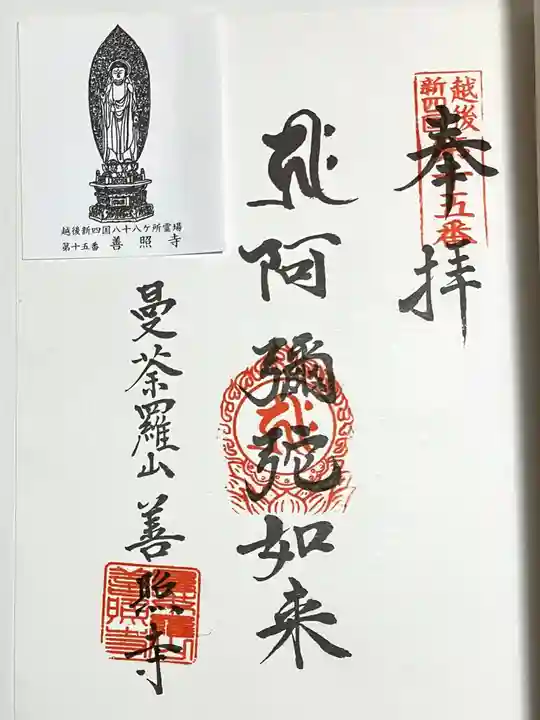 奉拝
越後
新四国
十五番
阿彌陀如来
曼荼羅山 善照寺
越後新四国八十八ケ所霊場
第十五番 善照寺